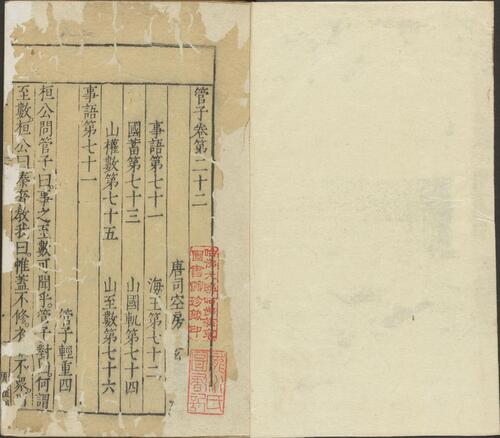 管子卷第二十二
唐司空房
事語第七十一 海王第七十二
國蓄第七十三 山國軌第七十四
山權數第七十五 山至數第七十六
事語第七十一
管子輕重四
桓公問管子曰事之至數可聞乎管子對曰何謂
至數桓公曰秦奢教我曰帷蓋不修衣 不眾
哈佛大學哈佛燕京
圖書館珍藏印